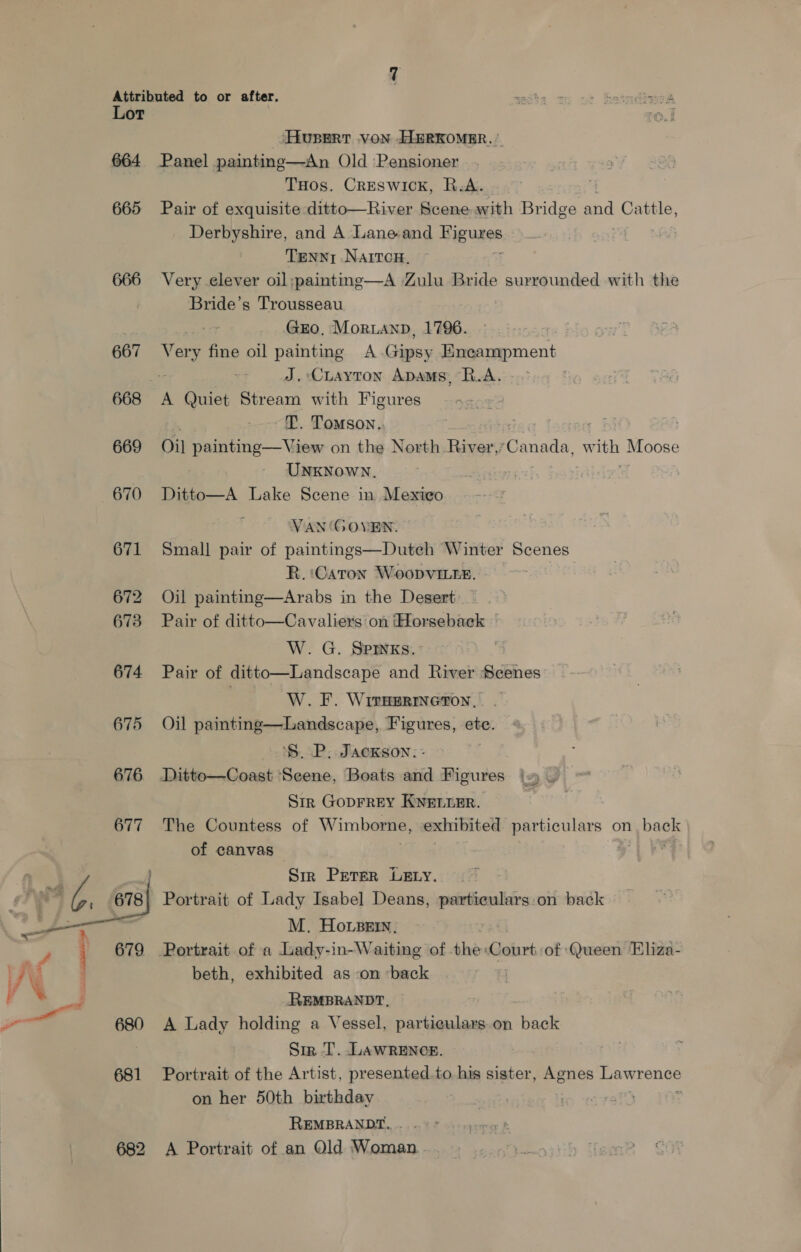 7
Attributed to or after.
Lot
Hubert von Herkomer.
664 Panel painting—An Old Pensioner
Thos. Creswick, R.A.
665 Pair of exquisite ditto—River Scene with Bridge and Cattle,
Derbyshire, and A Lane and Figures
Tenni Naitch,
666 Very clever oil painting—A Zulu Bride surrounded with the
Bride's Trousseau
Geo, Morland, 1796.
667 Very fine oil painting A Gipsy Encampment
J. Clayton Adams, R.A.
668 A Quiet Stream with Figures
T. Tomson.
669 Oil painting—View on the North River, Canada, with Moose
Unknown.
670 Ditto—A Lake Scene in Mexico
Van Goven.
671 Small pair of paintings—Dutch Winter Scenes
R. Caton Woodville.
672 Oil painting—Arabs in the Desert
673 Pair of ditto—Cavaliers on Horseback
W. G. Spinks.
674 Pair of ditto—Landscape and River Scenes
W. F. Witherington,
675 Oil painting—Landscape, Figures, etc.
S. P. Jackson.
676 Ditto—Coast Scene, Boats and Figures
Sir Godfrey Kneller.
677 The Countess of Wimborne, exhibited particulars on back
of canvas
Sir Peter Lely.
678 Portrait of Lady Isabel Deans, particulars on back
M. Holbein,
679 Portrait of a Lady-in-Waiting of the Court of Queen Eliza-
beth, exhibited as on back
Rembrandt,
680 A Lady holding a Vessel, particulars on back
Sir T. Lawrence.
681 Portrait of the Artist, presented to his sister, Agnes Lawrence
on her 50th birthday
Rembrandt.
682 A Portrait of an Old Woman